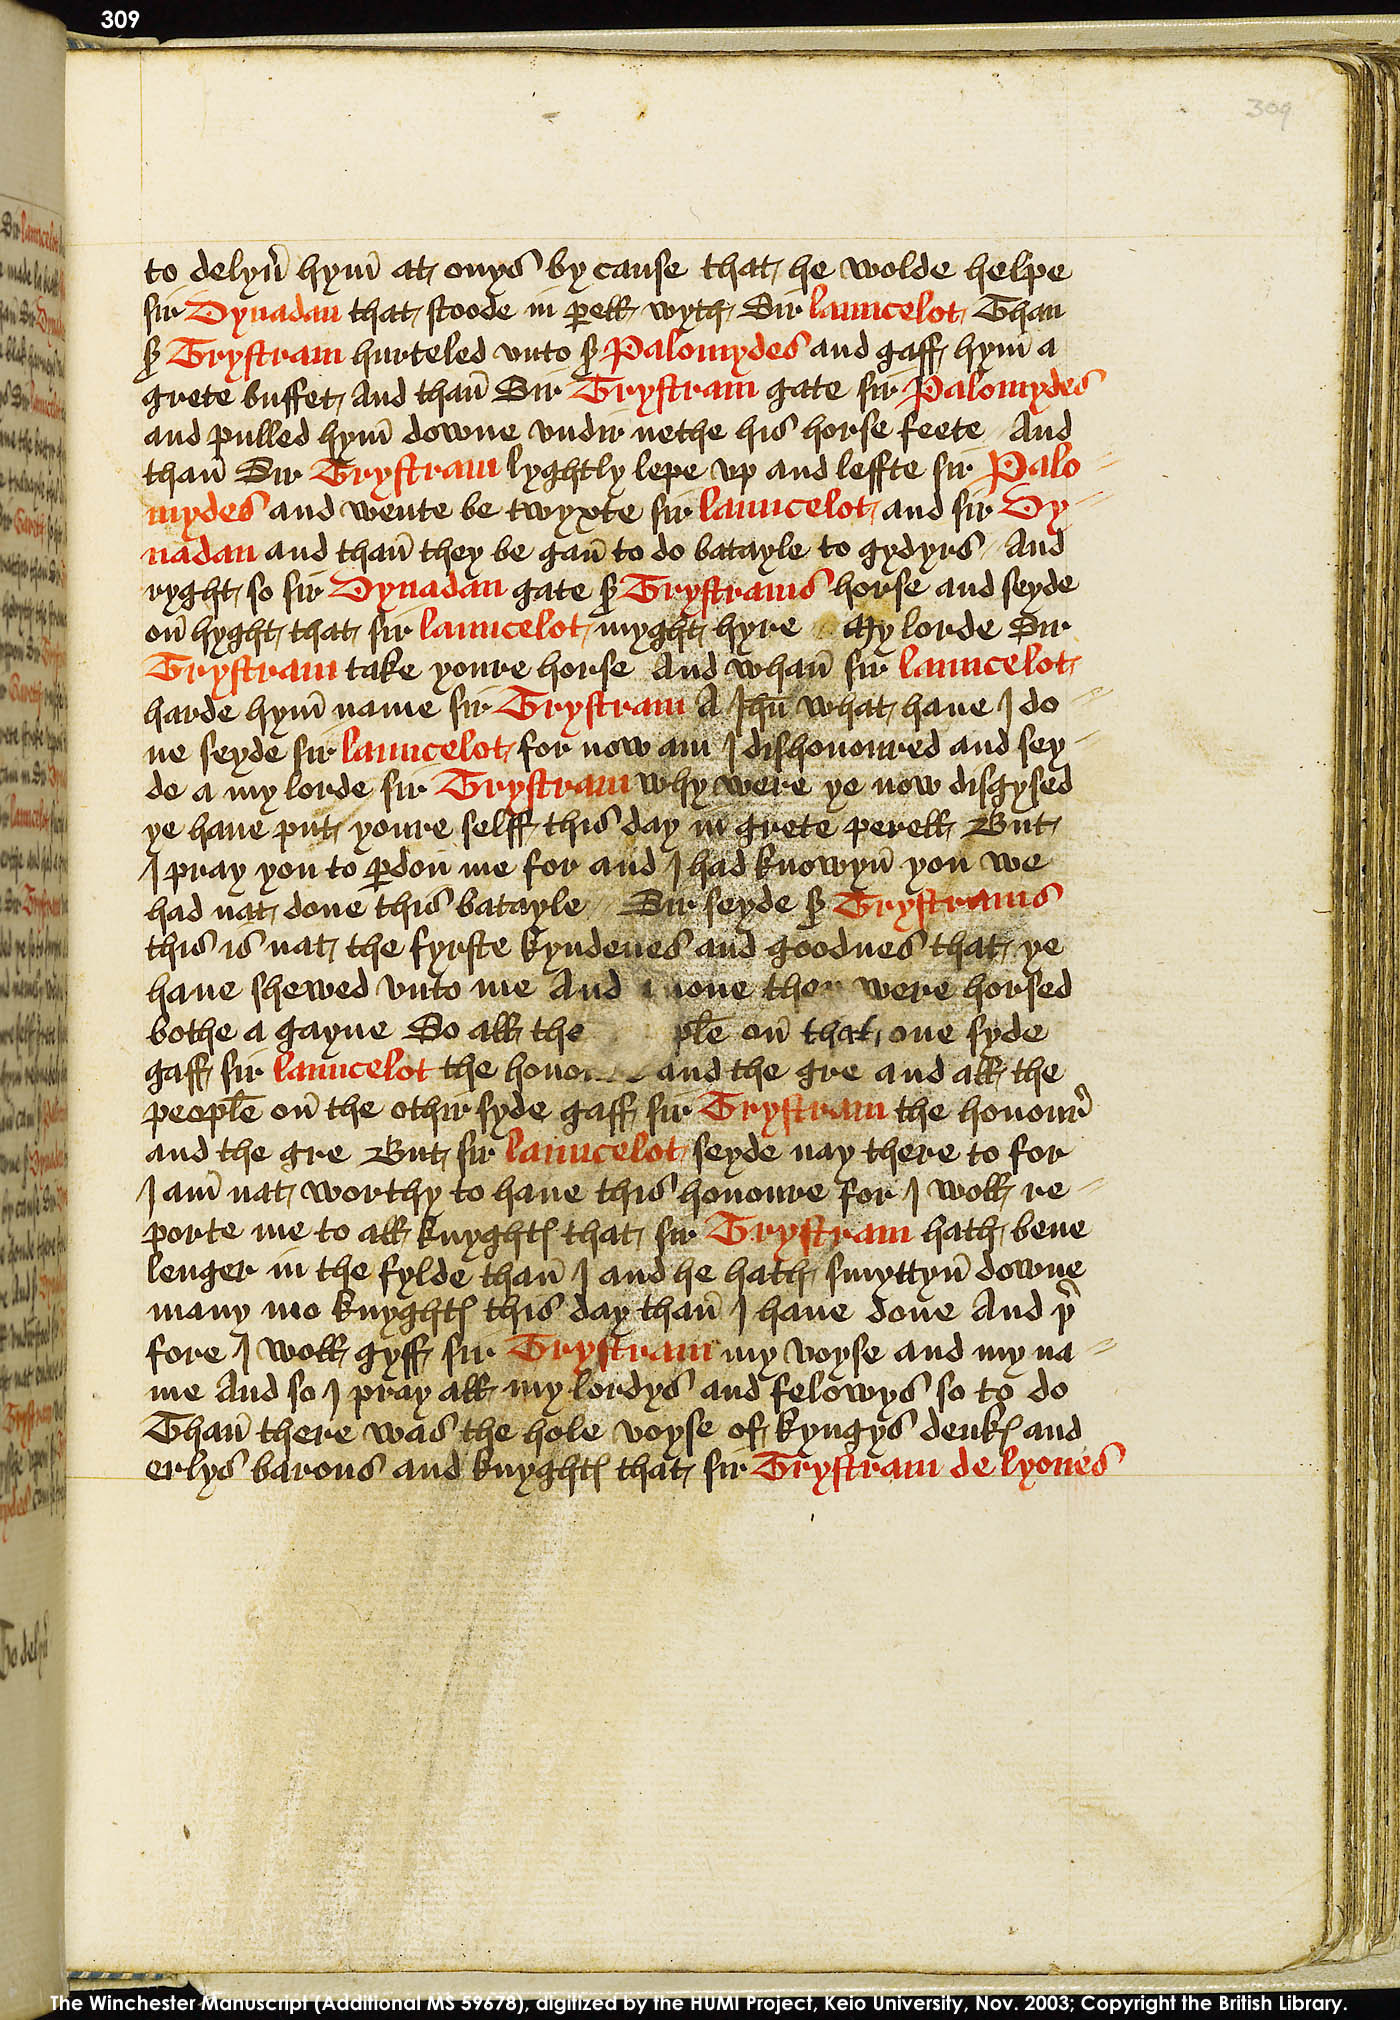 309
309
to delyũ hym̄ at onys by cause that he wolde helpe
sir Dynadan that stoode in ꝑell wyth Sir launcelot Than
sꝰ Trystram hurteled vnto sꝰ Palomydes and gaff hym̄ a
grete buffet And than̄ Sir Trystram gate sir Palomydes
and pulled hym̄ downe vndir nethe his horse feete // And
than̄ Sir Trystram lyghtly lepe vp and leffte sir Palo
mydes and wente be twyxte sir launcelot and sir Dy
nadan and than̄ they be gan̄ to do batayle to gydyrs // And
ryght so sir Dynadan gate sꝰ Trystrams horse and seyde
on̄ hyght that sir launcelot myght hyre // My lorde Sir
Trystram take youre horse And whan̄ sir launcelot
harde hym̄ name sir Trystram A Jhū what haue I do
ne seyde sir launcelot for now am I dishonoured and sey
de a my lorde sir Trystram why were ye now disgysed
ye haue put youre selff this day in grete perell But
I pray you to ꝑdon me for and I had knowyn̄ you we
had nat done this batayle // Sir seyde sꝰ Trystrams
this is nat the fyrste kyndenes and goodnes that ye
haue shewed vnto me And the were horsed
bothe a gayne So all the ple on̄ that one syde
gaff sir launcelot the hono and the gre and all the
people on̄ the othir syde gaff sir Trystram the honourꝰ
and the gre But sir launcelot seyde nay there to for
I am̄ nat worthy to haue this honoure for I woll re
porte me to all knyghtꝭ that sir Trystram hath bene
lenger in the fylde than̄ I and he hath smyttyn̄ downe
many mo knyghtꝭ this day than̄ I haue done And þꝰ
fore I woll gyff sir Trystram my voyse and my na
me And so I pray all my lordys and felowys so to do
Than̄ there was the hole voyse of kyngys deukꝭ and
erlys barons and knyghtꝭ that sir Trystram de lyones
The Winchester Manuscript (Additional MS 59678), digitized by the HUMI Project, Keio University, Nov. 2003; Copyright the British Library.